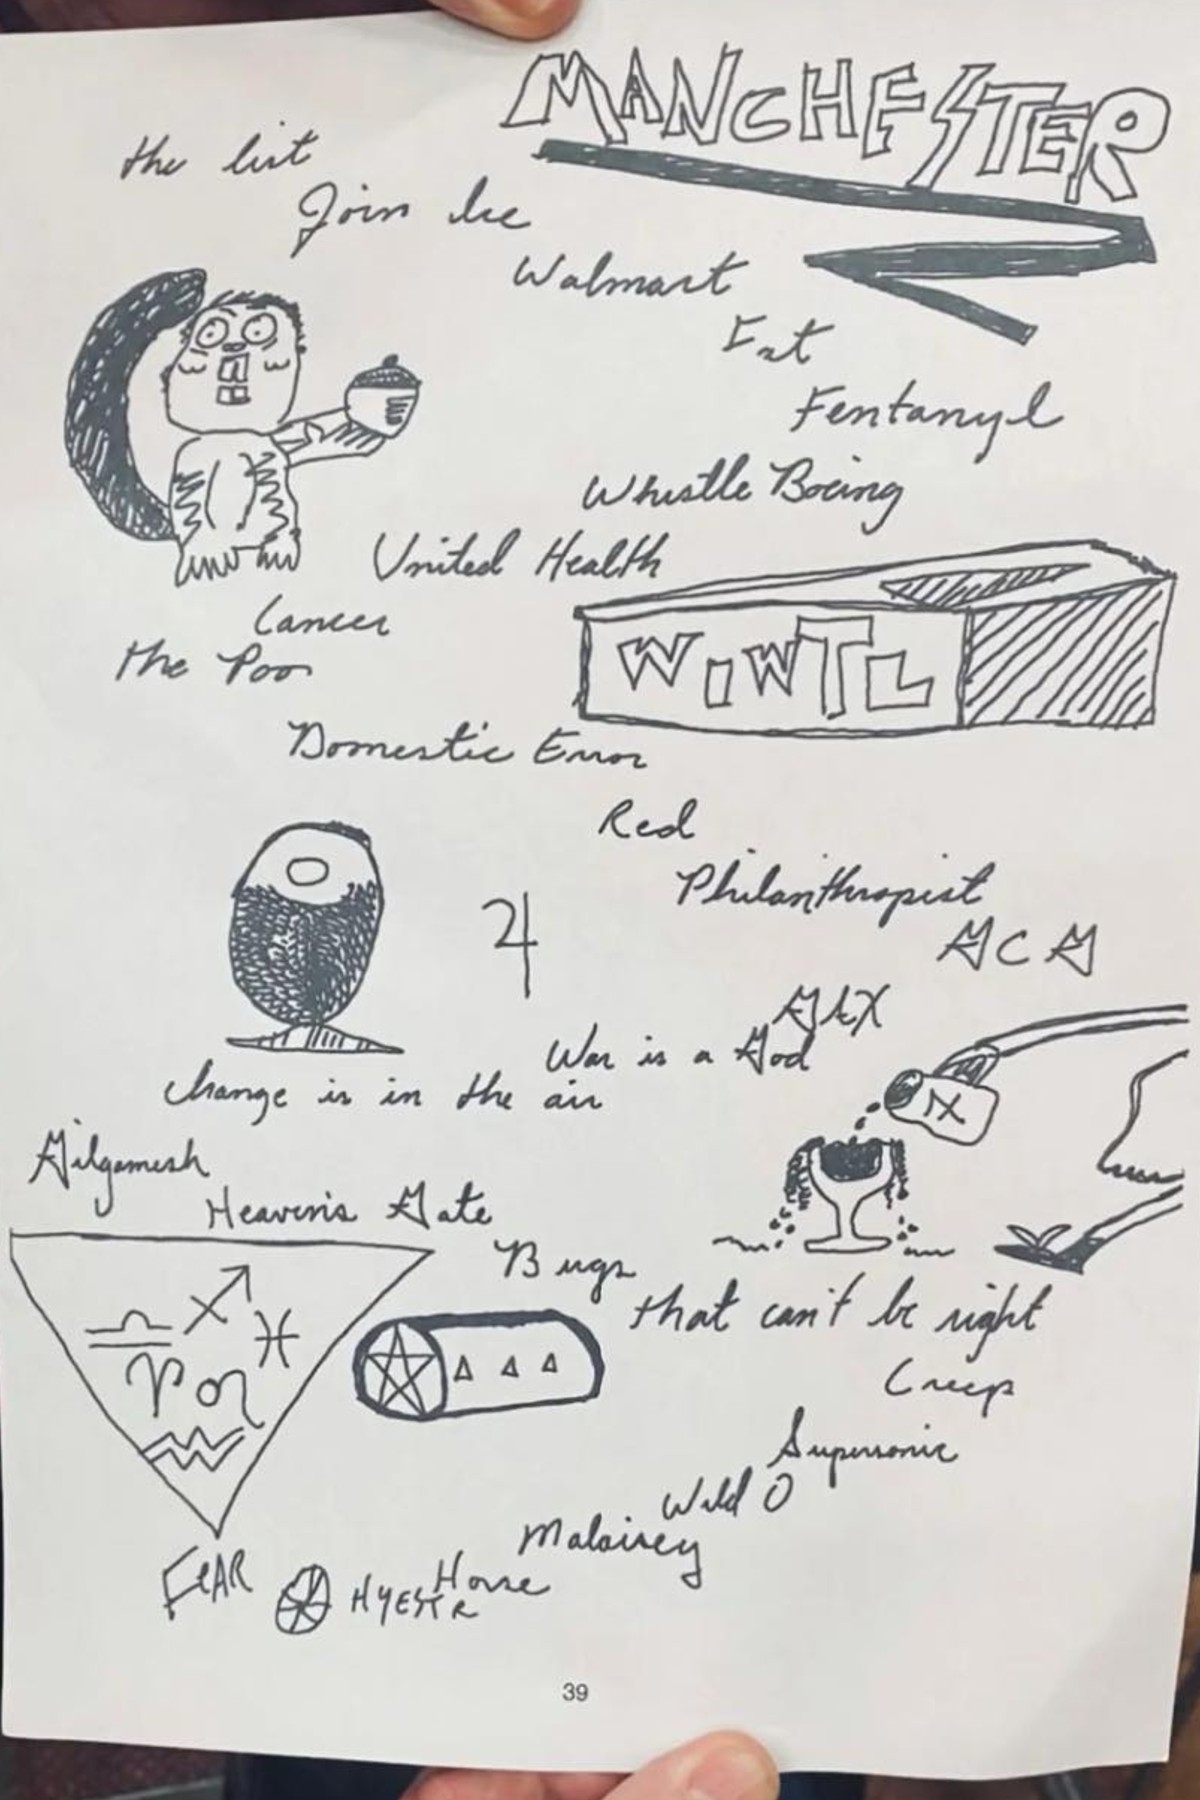 MANCHESTER
the list
Join Ice
Walmart
Fat
Fentanyl
Whistle Boeing
United Health
Cancer
the Poor
WiWTL
Domestic Error
Red
Philanthropist
♃
GCG
War is a God
Change is in the air
IX
Gilgamesh
Heaven's Gate
Bugs
that can't be right
♎ ♐ ♓
♈ ♌
♒
Creep
Supersonic
Wild O
Malaisey
Horse
FEAR
HYESTR
39